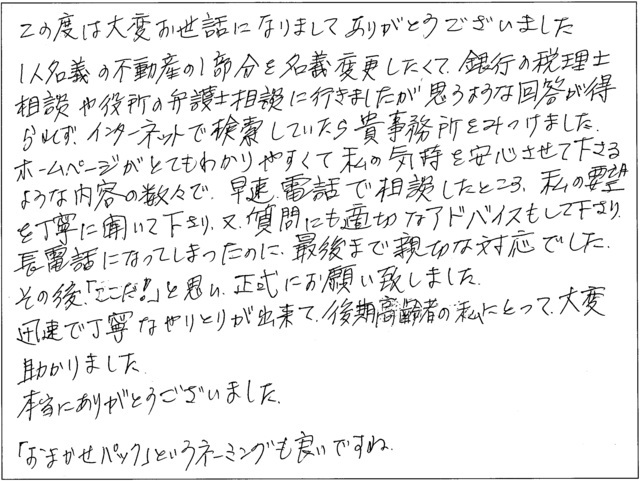 この度は大変お世話になりましてありがとうございました
1人名義の不動産の1部分を名義変更したくて、銀行の税理士
相談や役所の弁護士相談に行きましたが思うような回答が得
られず、インターネットで検索していたら貴事務所をみつけました。
ホームページがとてもわかりやすくて私の気持を安心させて下さる
ような内容の数々で、早速、電話で相談したところ、私の要望
を丁寧に聞いて下さり、又、質問にも適切なアドバイスもして下さり、
長電話になってしまったのに、最後まで親切な対応でした。
その後、「ここだ!」と思い、正式にお願い致しました。
迅速で丁寧なやりとりが出来て、後期高齢者の私にとって、大変
助かりました。
本当にありがとうございました。
「おまかせパック」というネーミングも良いですね。